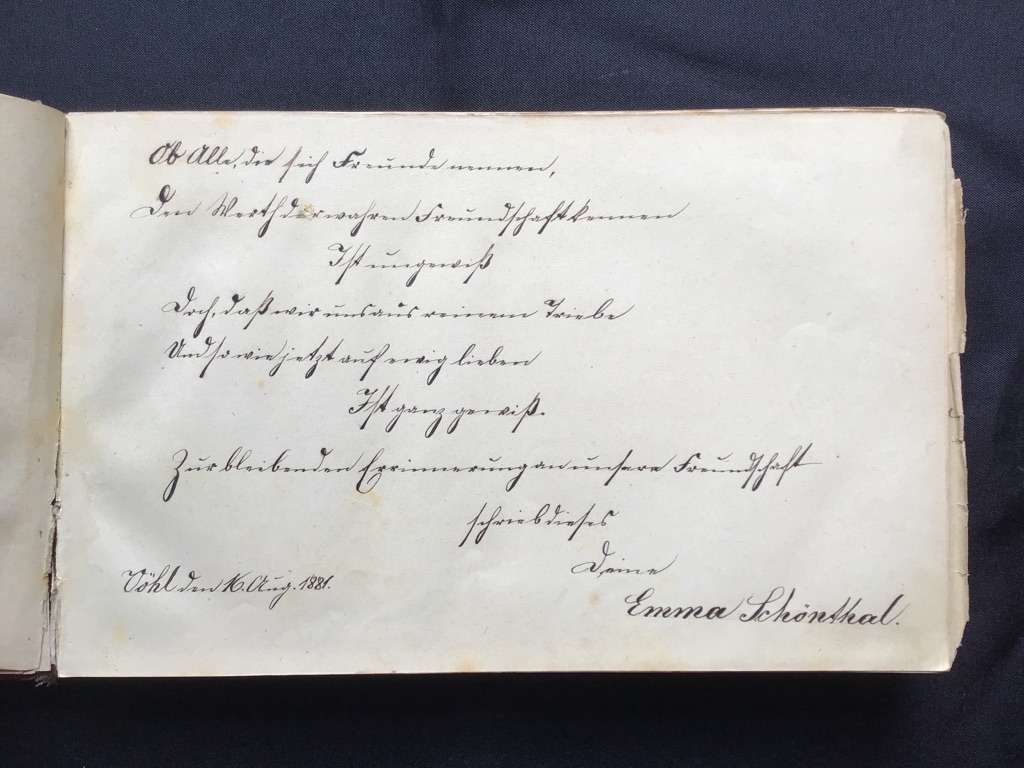 Ob Alle, die sich Freunde nennen,
Den Werth der wahren Freundschaft kennen
Ist ungewiß
Doch, daß wir uns aus reinem Triebe
Und so wie jetzt auf ewig lieben
Ist ganz gewiß.
Zur bleibenden Errinnerung an unsere Freundschaft
schrieb dieses
Deine
Vöhl den 16. Aug. 1881.
Emma Schönthal.